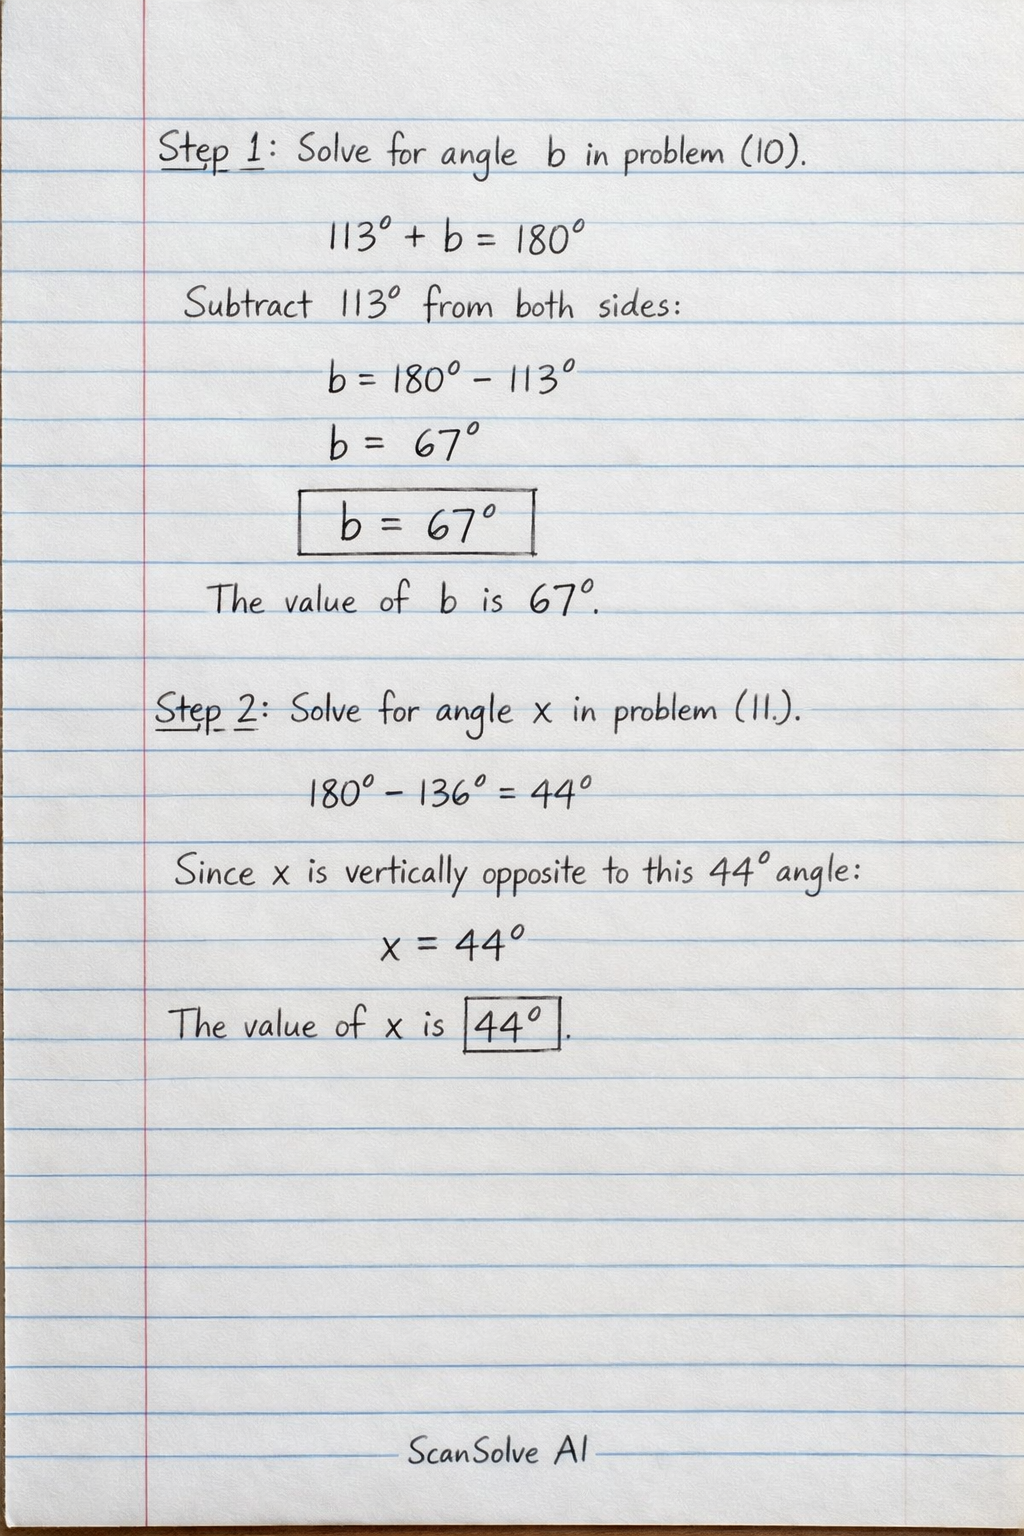 Step 1: Solve for angle b in problem (10).
113° + b = 180°
Subtract 113° from both sides:
b = 180° - 113°
b = 67°
b = 67°
The value of b is 67°.
Step 2: Solve for angle x in problem (11.).
180° - 136° = 44°
Since x is vertically opposite to this 44° angle:
x = 44°
The value of x is 44°.
ScanSolve AI